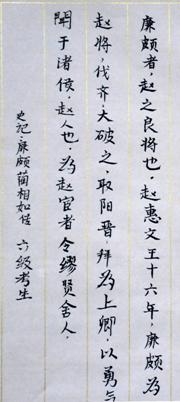 廉颇者，赵之良将也，赵惠文王十六年，廉颇为
赵将，伐齐，大破之，取阳晋，拜为上卿，以勇气
闻于诸侯，赵人也，为赵宦者令缪贤舍人，
史记廉颇蔺相如传 六级考生